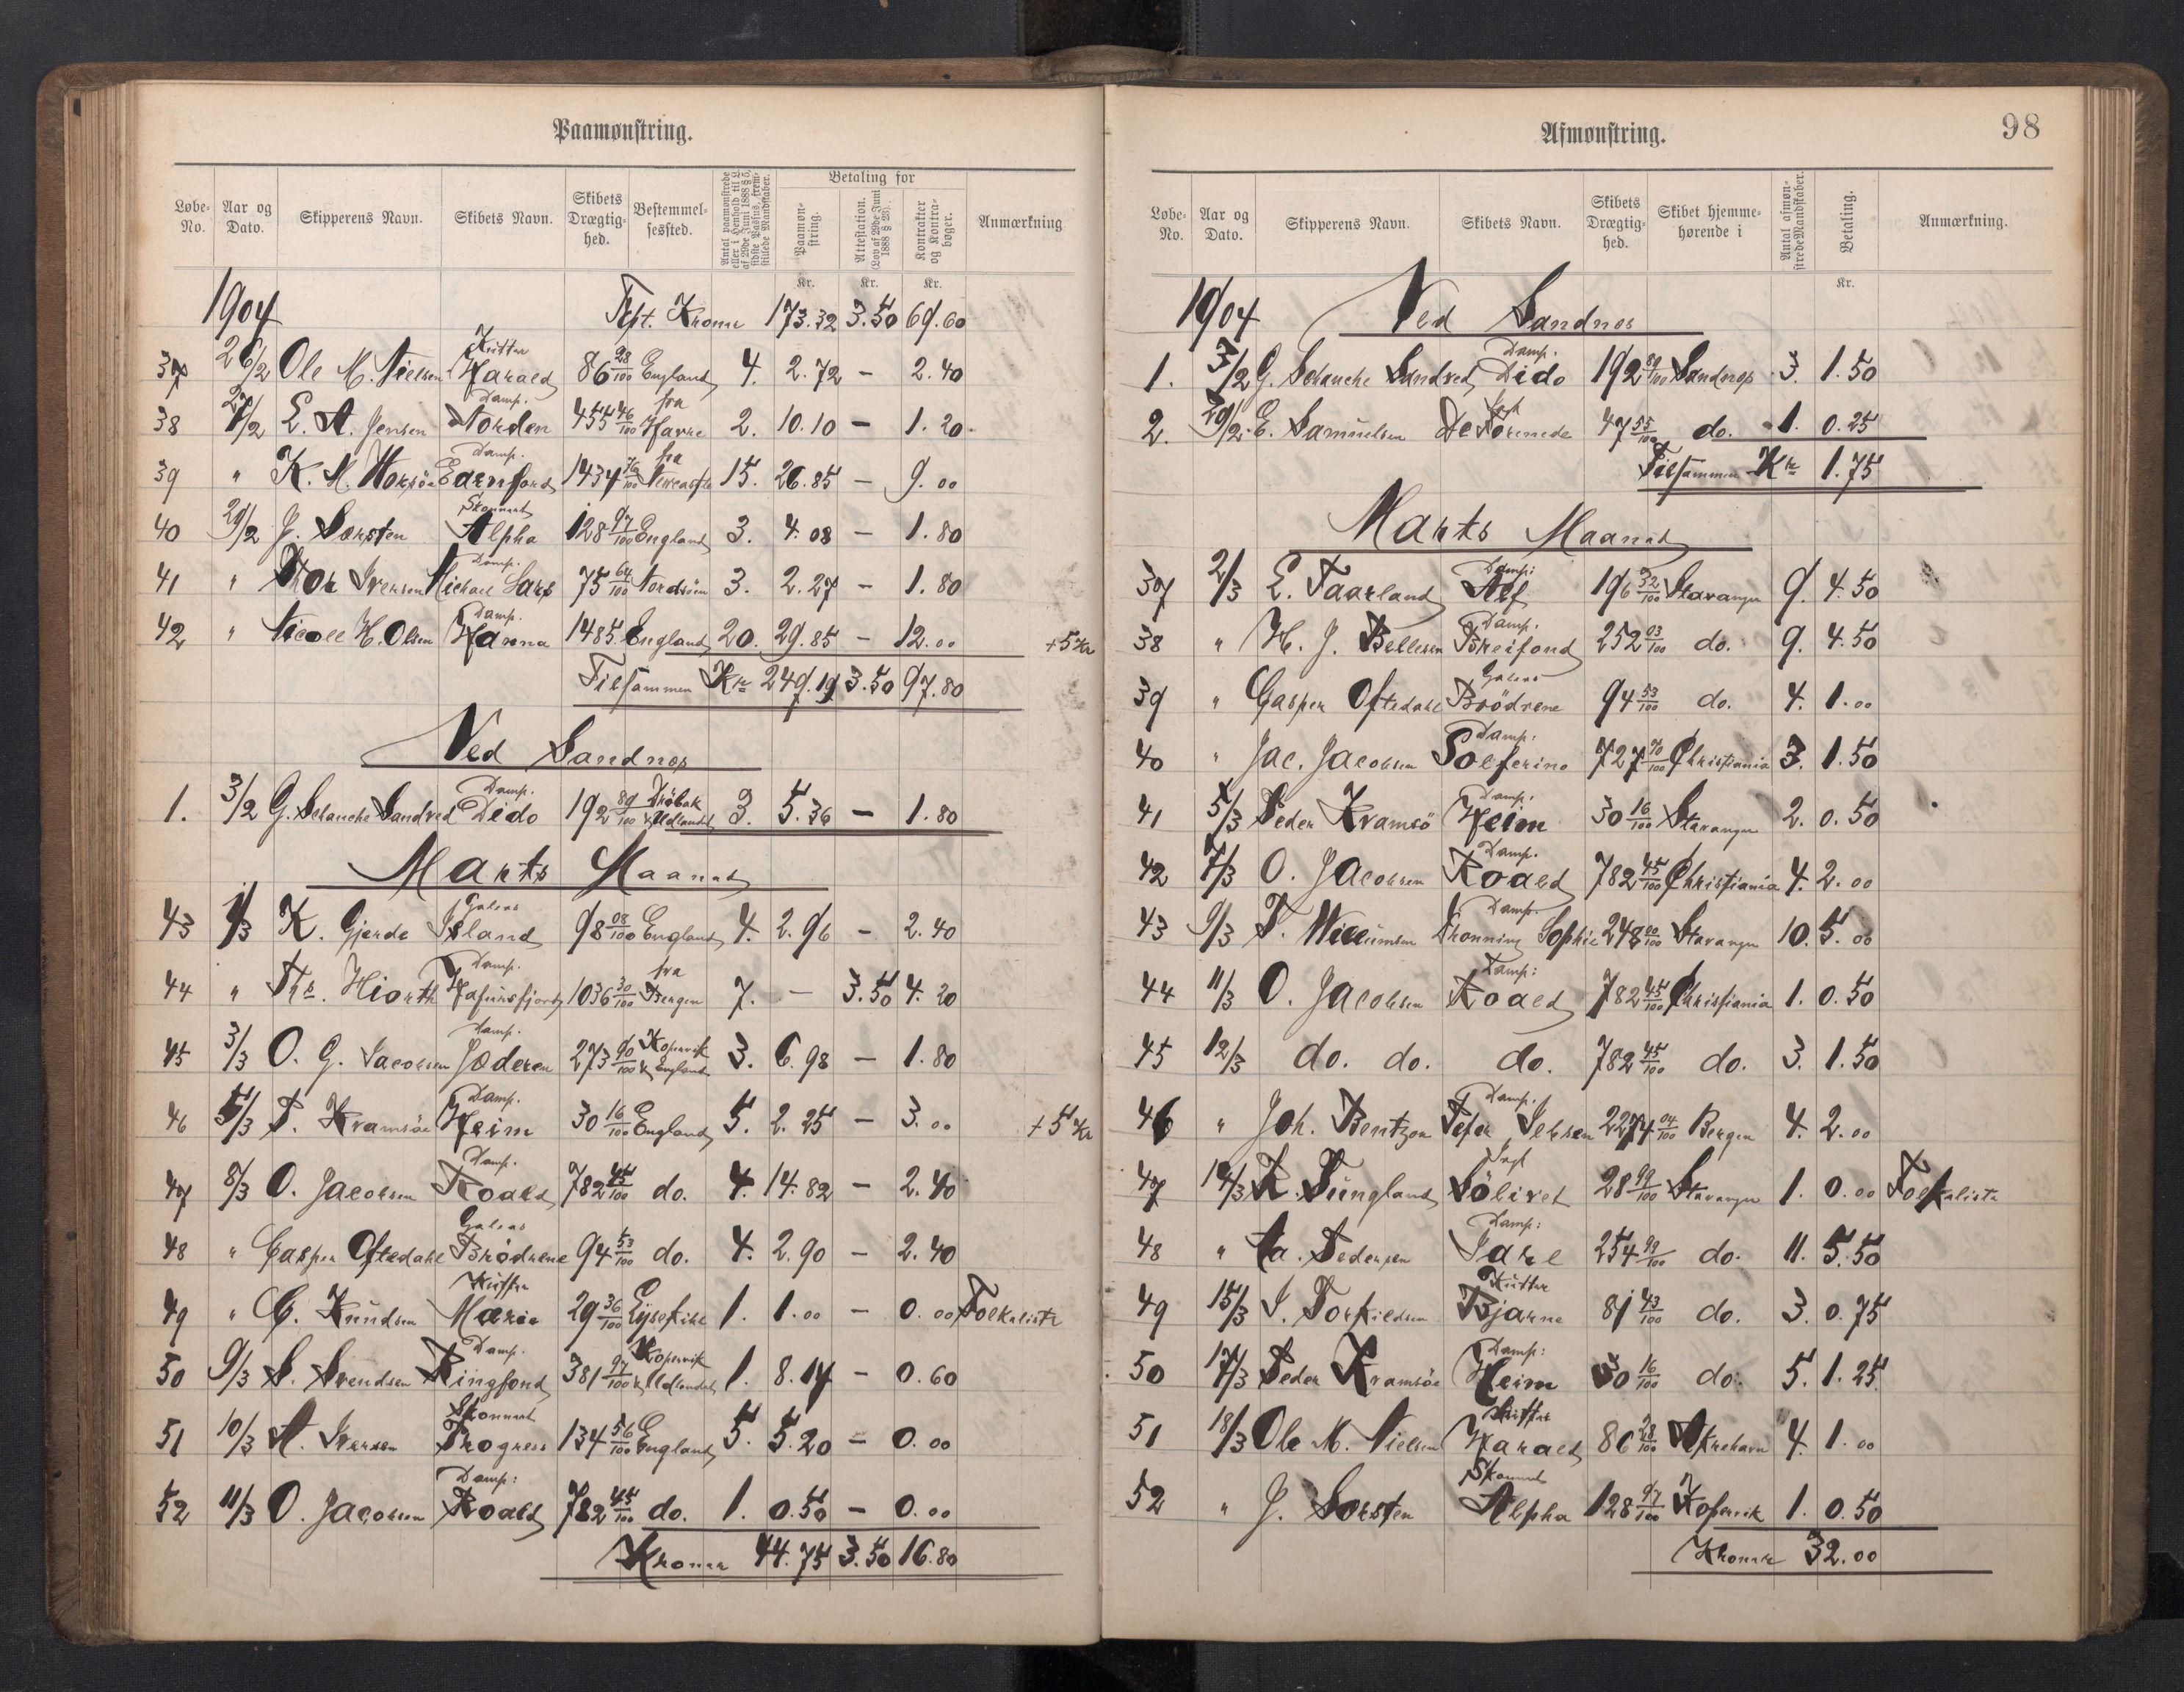 Paamønstring.
Løbe-No. Aar og Dato. Skipperens Navn. Skibets Navn. Skibets Drægtig-hed. Bestemmel-sessted. Antal paamønstrede eller i Henhold til L. af 29de Juni 1888 § 5, sidste Passus, frem-stillede Mandskaber. Betaling for Paamøn-string. Attestation. (Lov af 29de Juni 1888 § 23). Kontrakter og Kontra-bøger. Anmærkning
Kr. Kr. Kr.
1904 Tpt. Kroner 173.32 3.50 69.60
37 26/2 Ole M. Nielsen Kutter Harald 86 28/100 England 4. 2.72 — 2.40
38 27/2 E. A. Jensen Damp. Norden 455 46/100 fra Havre 2. 10.10 — 1.20
39 " K. M. Damp. Earnford 1434 76/100 fra Newcastle 15. 26.85 — 9.00
40 29/2 J. Sørsten Skonnert Alpha 128 97/100 England 3. 4.08 — 1.80
41 " Thor Iversen Damp. Michael Sars 75 64/100 Nordsöen 3. 2.27 — 1.80
42 " Nicoll H. Olsen Damp. Hanna 1485. England 20. 29.85 — 12.00 + 5 Kr
Tilsammen Kr 249.19 3.50 97.80
Ved Sandnes
1. 3/2 G. Schanche Sandved Damp. Dido 192 89/100 Dröbak & Udlandet 3. 5.36 — 1.80
Marts Maaned
43 1/3 K. Gjerde Galeas Island 98 08/100 England 4. 2.96 — 2.40
44 " Kr. Hiorth Damp. Hafursfjord 1036 30/100 fra Bergen 7. — 3.50 4.20
45 3/3 O. G. Jacobsen Damp. Jæderen 273 90/100 Kopervik & England 3. 6.98 — 1.80
46 5/3 P. Kramsöe Damp. Heim 30 16/100 England 5. 2.25 — 3.00 + 5 Kr
47 8/3 O. Jacobsen Damp. Roald 782 45/100 do. 4. 14.82 — 2.40
48 " Casper Oftedahl Galeas Brödrene 94 53/100 do. 4. 2.90 — 2.40
49 " C. Knudsen Kutter Marie 29 36/100 1. 1.00 — 0.00 Folkeliste
50 9/3 S. Svendsen Damp. Ringfond 381 97/100 Kopervik & Udlandet 1. 8.14 — 0.60
51 10/3 A. Iversen Skonnert Progress 134 56/100 England 5. 5.20 — 0.00
52 11/3 O. Jacobsen Damp: Roald 782 45/100 do. 1. 0.50 — 0.00
Kroner 44.75 3.50 16.80
98
Afmønstring.
Løbe-No. Aar og Dato. Skipperens Navn. Skibets Navn. Skibets Drægtig-hed. Skibet hjemme-hørende i Antal afmøn-strede Mandskaber. Betaling. Anmærkning.
Kr.
1904 Ved Sandnes
1. 3/2 G. Schanche Sandved Damp. Dido 192 89/100 Sandnes 3. 1.50
2. 29/2 E. Samuelsen 47 55/100 do. 1. 0.25
Tilsammen Kr 1.75
Marts Maaned
37 2/3 E. Taarland Damp: Alf 196 32/100 Stavanger 9. 4.50
38 " H. J. Bellesen Damp. Breifond 252 03/100 do. 9. 4.50
39 " Casper Oftedahl Galeas Brödrene 94 53/100 do. 4. 1.00
40 " Jac. Jacobsen Damp. Solferino 727 90/100 Christiania 3. 1.50
41 5/3 Peder Kramsö Damp. Heim 30 16/100 Stavanger 2. 0.50
42 7/3 O. Jacobsen Damp. Roald 782 45/100 Christiania 4. 2.00
43 9/3 T. Willumsen Damp. Dronning Sophie 248 00/100 Stavanger 10. 5.00
44 11/3 O. Jacobsen Damp: Roald 782 45/100 Christiania 1. 0.50
45 12/3 do. do. do. 782 45/100 do. 3. 1.50
46 " Joh. Bentzon Damp. Peter Jebsen 2274 04/100 Bergen 4. 2.00
47 14/3 Jagt Sölivet 28 99/100 Stavanger 1. 0.00 Folkeliste
48 " Aa. Pedersen Damp: Jarl 254 99/100 do. 11. 5.50
49 15/3 I. Torkildsen Kutter Bjarne 81 43/100 do. 3. 0.75
50 17/3 Peder Kramsöe Damp: Heim 30 16/100 do. 5. 1.25
51 18/3 Ole M. Nielsen Kutter Harald 86 28/100 Akrehavn 4. 1.00
52 " J. Sørsten Skonnert Alpha 128 97/100 Kopervik 1. 0.50
Kroner 32.00